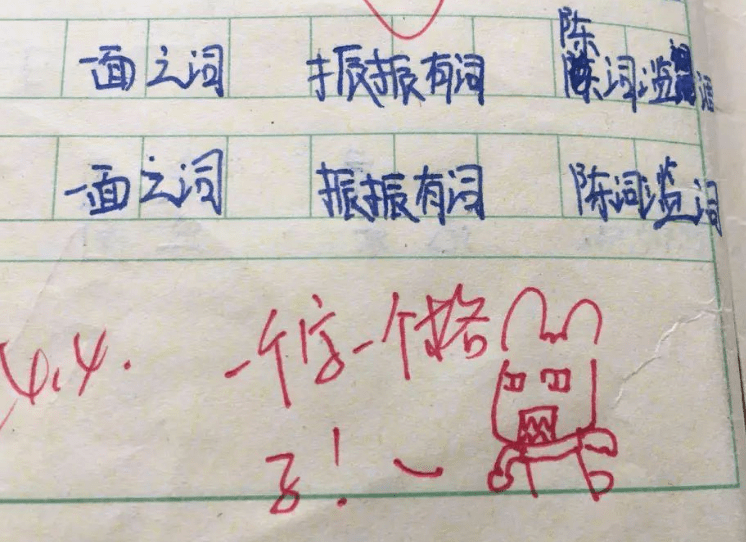 一面之词 振振有词 陈词滥调
一面之词 振振有词 陈词滥词
4.4. 一个字一个格
子!